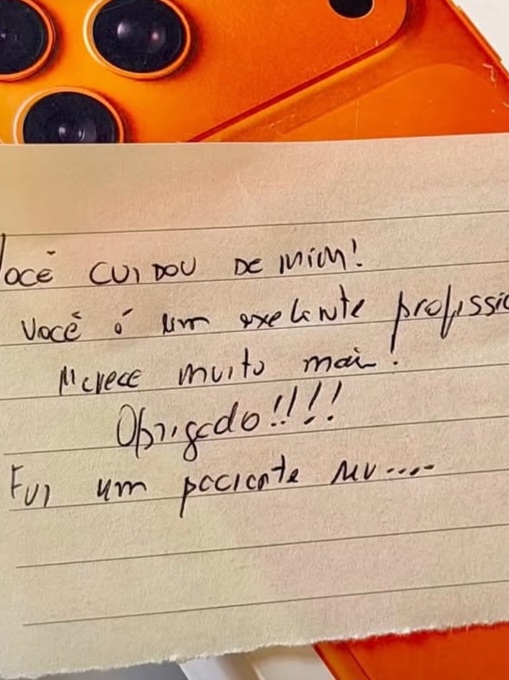 Você CUIDOU DE MIM!
Você é um exelente profissio
Merece muito mais!
Obrigado!!!!
Fui um paciente seu....